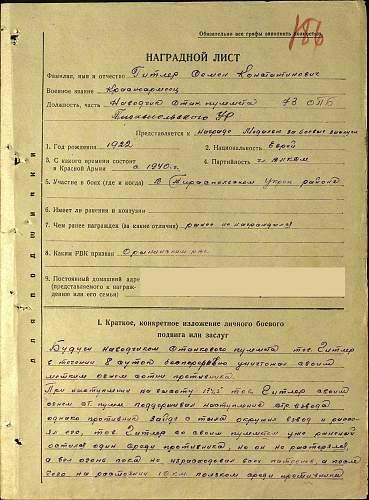 Обязательно все графы заполнять полностью
186
НАГРАДНОЙ ЛИСТ
Фамилия, имя и отчество Гитлер Семен Константинович
Военное звание Красноармеец
Должность, часть Наводчик стан. пулемета 73 ОПБ
Тираспольского УР
Представляется к Награде Медаль за боевые заслуги
1. Год рождения 1922
2. Национальность Еврей
3. С какого времени состоит в Красной Армии с 1940 г.
4. Партийность чл ВЛКСМ
5. Участие в боях (где и когда) В Тираспольском Укреп районе
6. Имеет ли ранения и контузии
7. Чем ранее награжден (за какие отличия) ранее не награждался
8. Каким РВК призван Орынинским РВК
9. Постоянный домашний адре
(представляемого к награж-
дению или его семьи)
I. Краткое, конкретное изложение личного боевого
подвига или заслуг
Будучи наводчиком станкового пулемета тов. Гитлер
в течении 8 суток беспрерывно уничтожал своим
метким огнем сотни противника.
При наступлении на высоту 174,5 тов. Гитлер своим
огнем ст. пулем. поддерживал наступление стр. взвода
однако противник зайдя с тыла окружил взвод и рассе-
ял его, тов. Гитлер со своим пулеметом уже раненый
остался один среди противника, но он не растерялся,
а вел огонь пока не израсходовал всех патронов, а после
чего на растоянии 10 км ползком среди противника
для подшивки